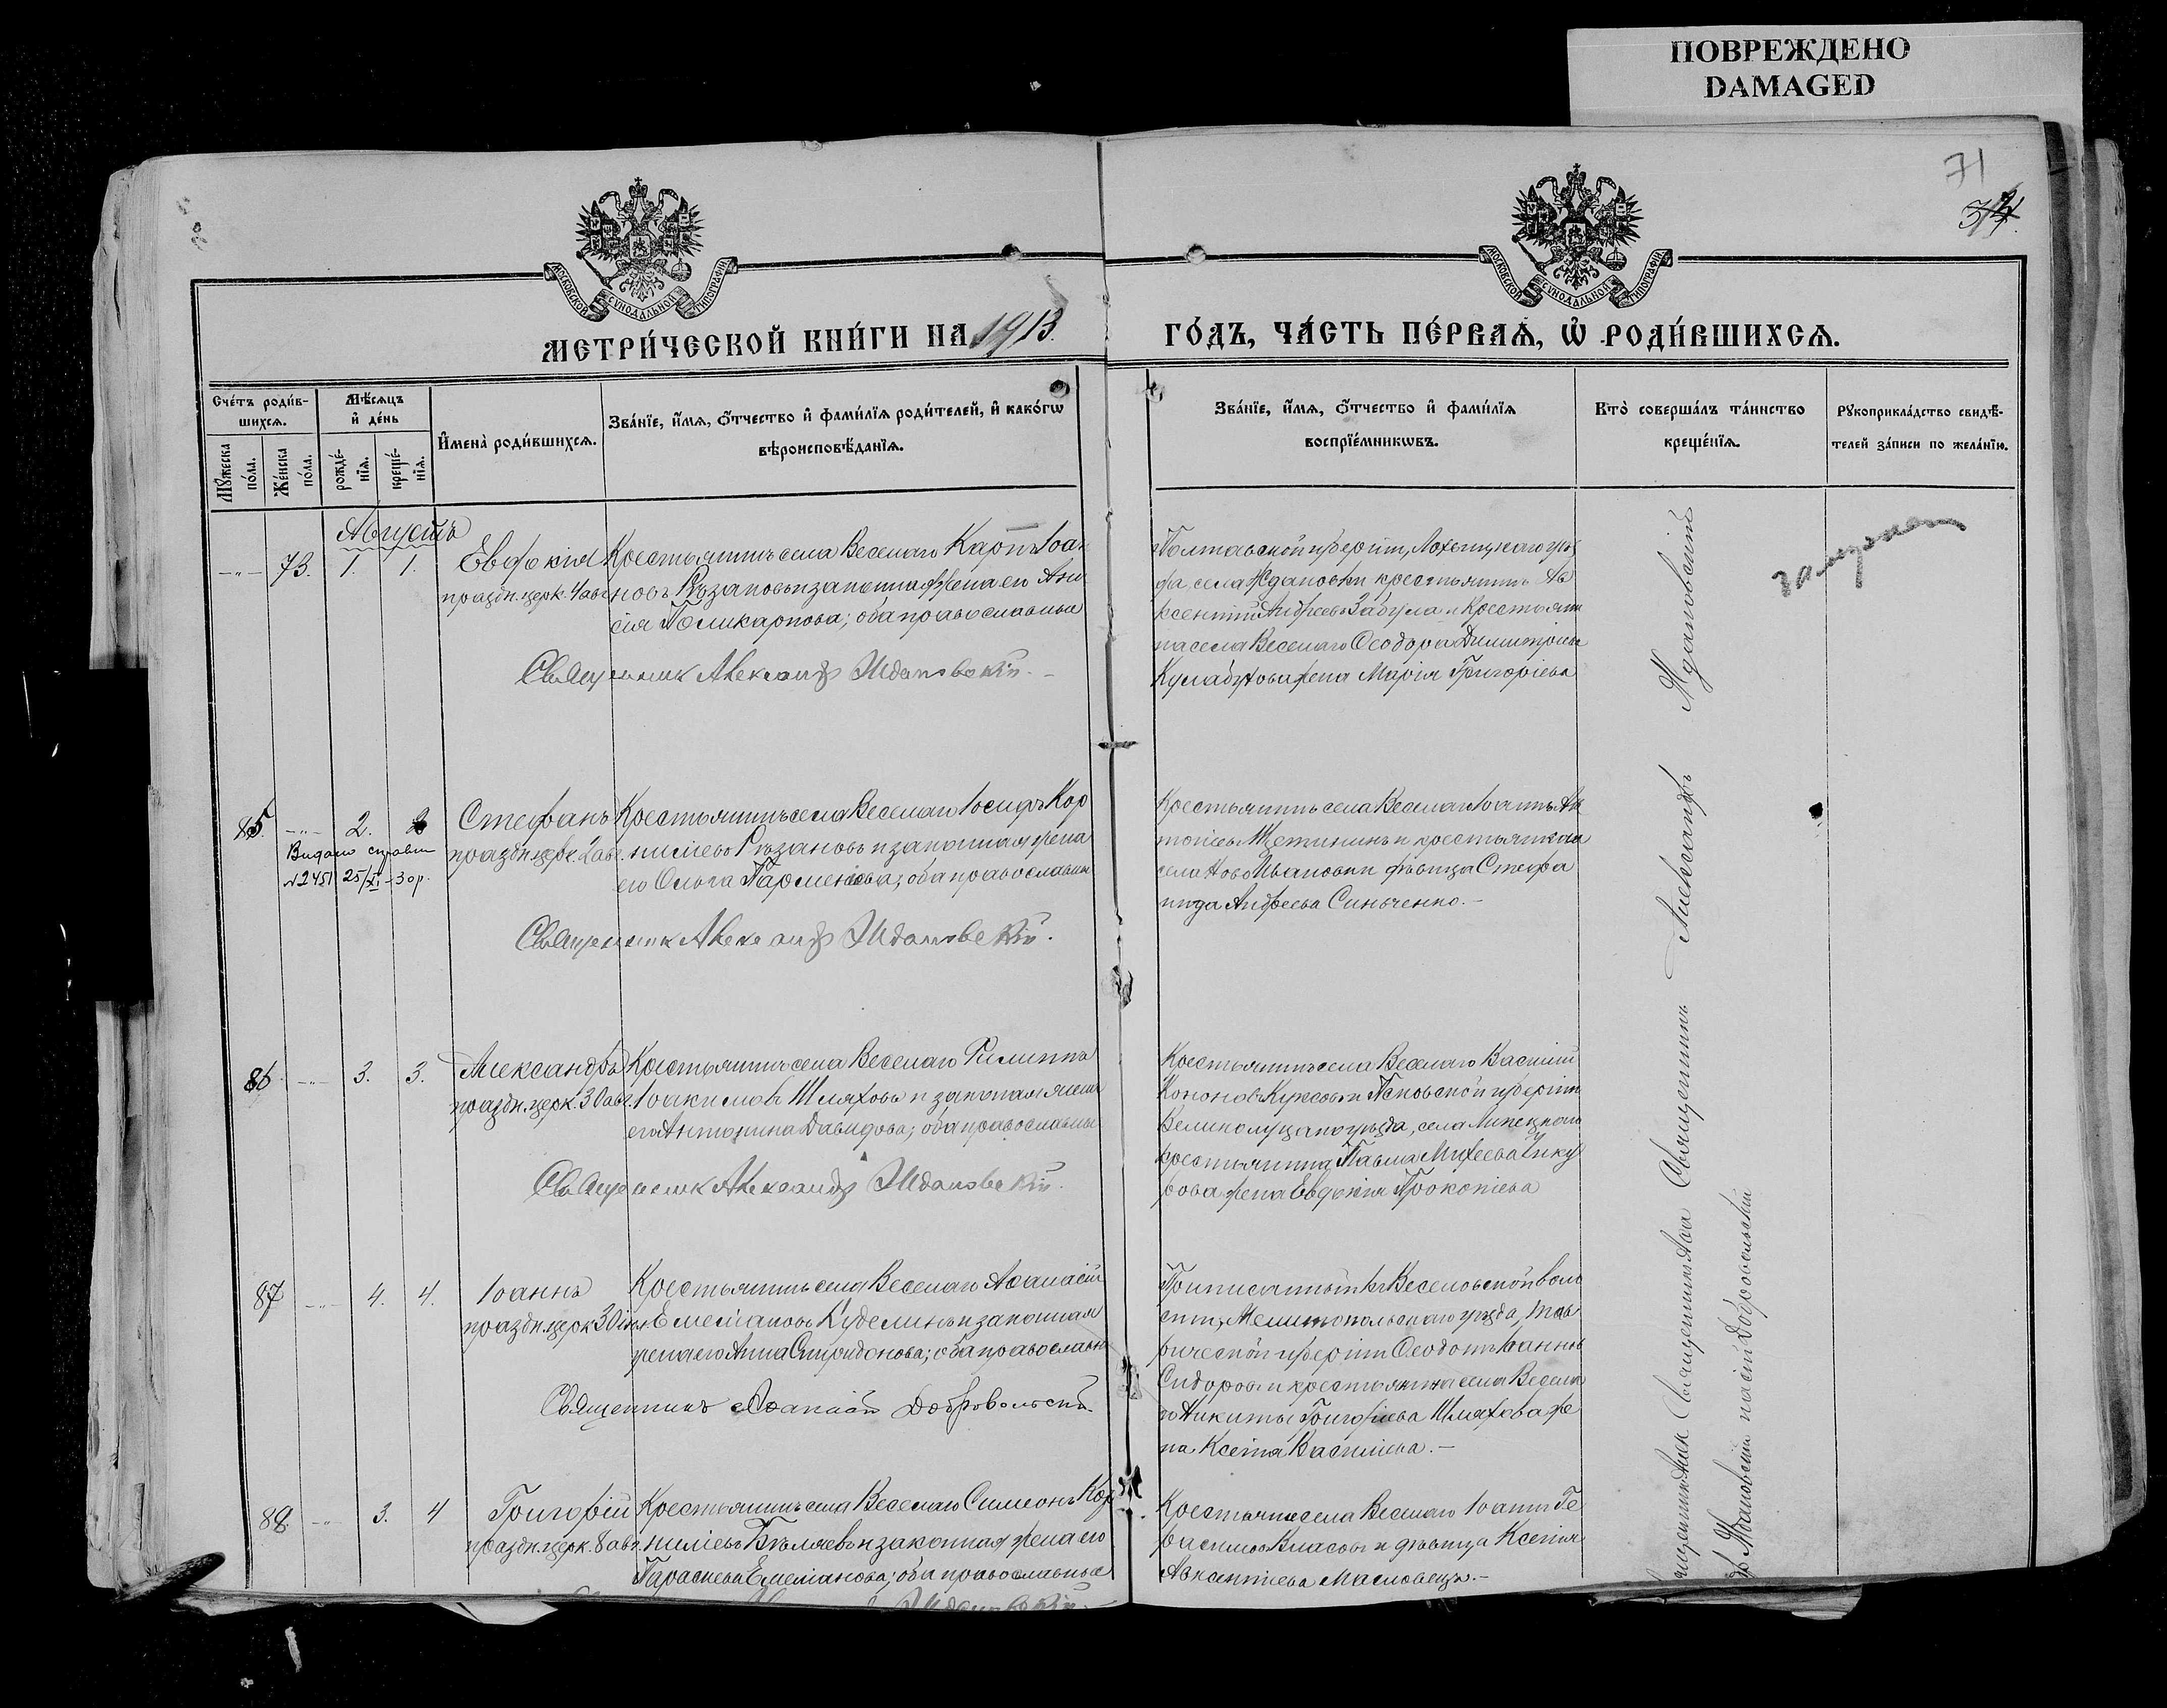 ПОВРЕЖДЕНО
DAMAGED
71
МОСКОВСКОЙ СѴНОДАЛЬНОЙ ТИПОГРАФІИ
МОСКОВСКОЙ СѴНОДАЛЬНОЙ ТИПОГРАФІИ
МЕТРИ́ЧЕСКОЙ КНИ́ГИ НА 1913. ГО́ДЪ, ЧА́СТЬ ПЕ́РВАѦ, Ѿ РОДИ́ВШИХСѦ.
Сче́тъ роди́в-
шихсѧ.
Мꙋ́жеска по́ла.
Же́нска по́ла.
Мѣ́сѧцъ
и҆ де́нь
рожде́-
нїѧ.
креще́-
нїѧ.
И҆мена̀ роди́вшихсѧ.
Зва́нїе, и҆́мѧ, ѻ҆́тчество и҆ фами́лїѧ роди́телей, и҆ како́гѡ
вѣроисповѣ́данїѧ.
Зва́нїе, и҆́мѧ, ѻ҆́тчество и҆ фами́лїѧ
воспрїе́мникѡвъ.
Кто̀ соверша́лъ та́инство
креще́нїѧ.
Рꙋкоприкла́дство свидѣ́-
телей за́писи по жела́нїю.
Августъ
-"- 73. 1. 1.
Евдокія
праздн. церк. 4 авг.
Крестьянинъ села Веселаго Карпъ Іоан
новъ Рѣзановъ и законная жена его Ани
сія Поликарпова; оба православные
Священник Александр Ждановский. -
Полтавской губерніи, Лохвицкаго уѣз
да, села Ждановки крестьянинъ Ав
ксентій Андреевъ Забула и крестьяни
на села Веселаго Ѳеодора Димитріева
жена Марія Григоріева
85. -"- 2. 2
Видано справки
№ 2451 25/XI-30 р.
Стефанъ
праздн. церк. 2 авг.
Крестьянинъ села Веселаго Іосифъ Кор
ниліевъ Рѣзановъ и законная жена
его Ольга Парменіева; оба православные
Священник Александр Ждановский.
Крестьянинъ села Веселаго Іоаннъ Ан
тоніевъ Щетининъ и крестьянская
села Ново Ивановки дѣвица Стефа
нида Андреева Синьченко. -
86. -"- 3. 3.
Александръ
праздн. церк. 30 авг.
Крестьянинъ села Веселаго Филиппъ
Іоакимовъ Шляховъ и законная жена
его Антонина Давидова; оба православные
Священник Александр Ждановский.
Крестьянинъ села Веселаго Василій
Кононовъ и Псковской губерніи
Великолуцкаго уѣзда, села Липецкаго
крестьянина Павла Михеева Чику
рова жена Евдокія Прокопіева
87 -"- 4. 4.
Іоаннъ
праздн. церк. 30
Крестьянинъ села Веселаго Аѳанасій
Емеліановъ Куделинъ и законная
жена его Анна Спиридонова; оба православн
Священникъ Добровольскій
Приписанный къ Веселовской воло
сти, Мелитопольскаго уѣзда, Тав
рической губерніи Ѳеодотъ Іоанновъ
Сидоровъ и крестьянина села Весела
го Никиты Григоріева Шляхова же
на Ксенія Василіева. -
88. -"- 3. 4
Григорій
праздн. церк. 8 авг.
Крестьянинъ села Веселаго Симеонъ Кор
ниліевъ Бѣляевъ и законная жена его
Параскева Емеліанова; оба православные
Крестьяне села Веселаго Іоаннъ Ге
расимовъ Власовъ и дѣвица Ксенія
Авксентіева Масловецъ. -
Священникъ Александръ Ждановскій
Добровольскій